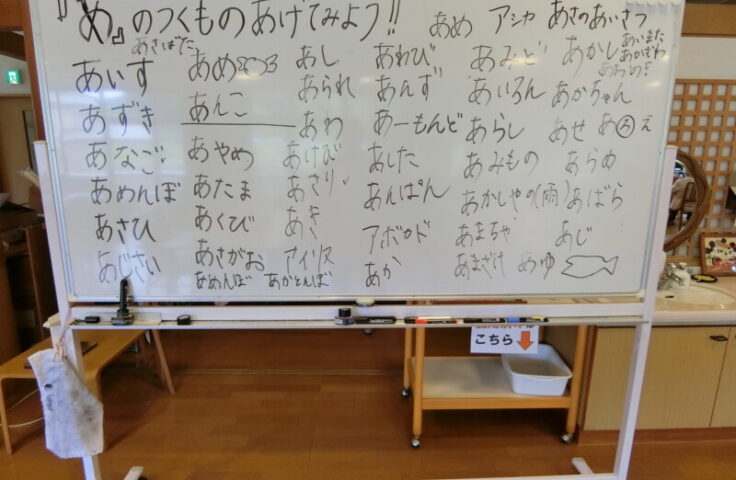 『あ』のつくものあげてみよう!!
あめ アシカ あさのあいさつ
あいす
あずき
あなご
あめんぼ
あさひ
あじさい
あめ
あんこ
あやめ
あたま
あくび
あさがお
あめんぼ
あし
あられ
あわ
あけび
あさり
あき
アイリス
あかとんぼ
あわび
あんず
あーもんど
あした
あんぱん
アボカド
あか
あみど
あいろん
あらし
あみもの
あかしやの(雨)
あまちゃ
あまざけ
あゆ
あかし
あかちゃん
あせ
あらめ
あばら
あじ
こちら